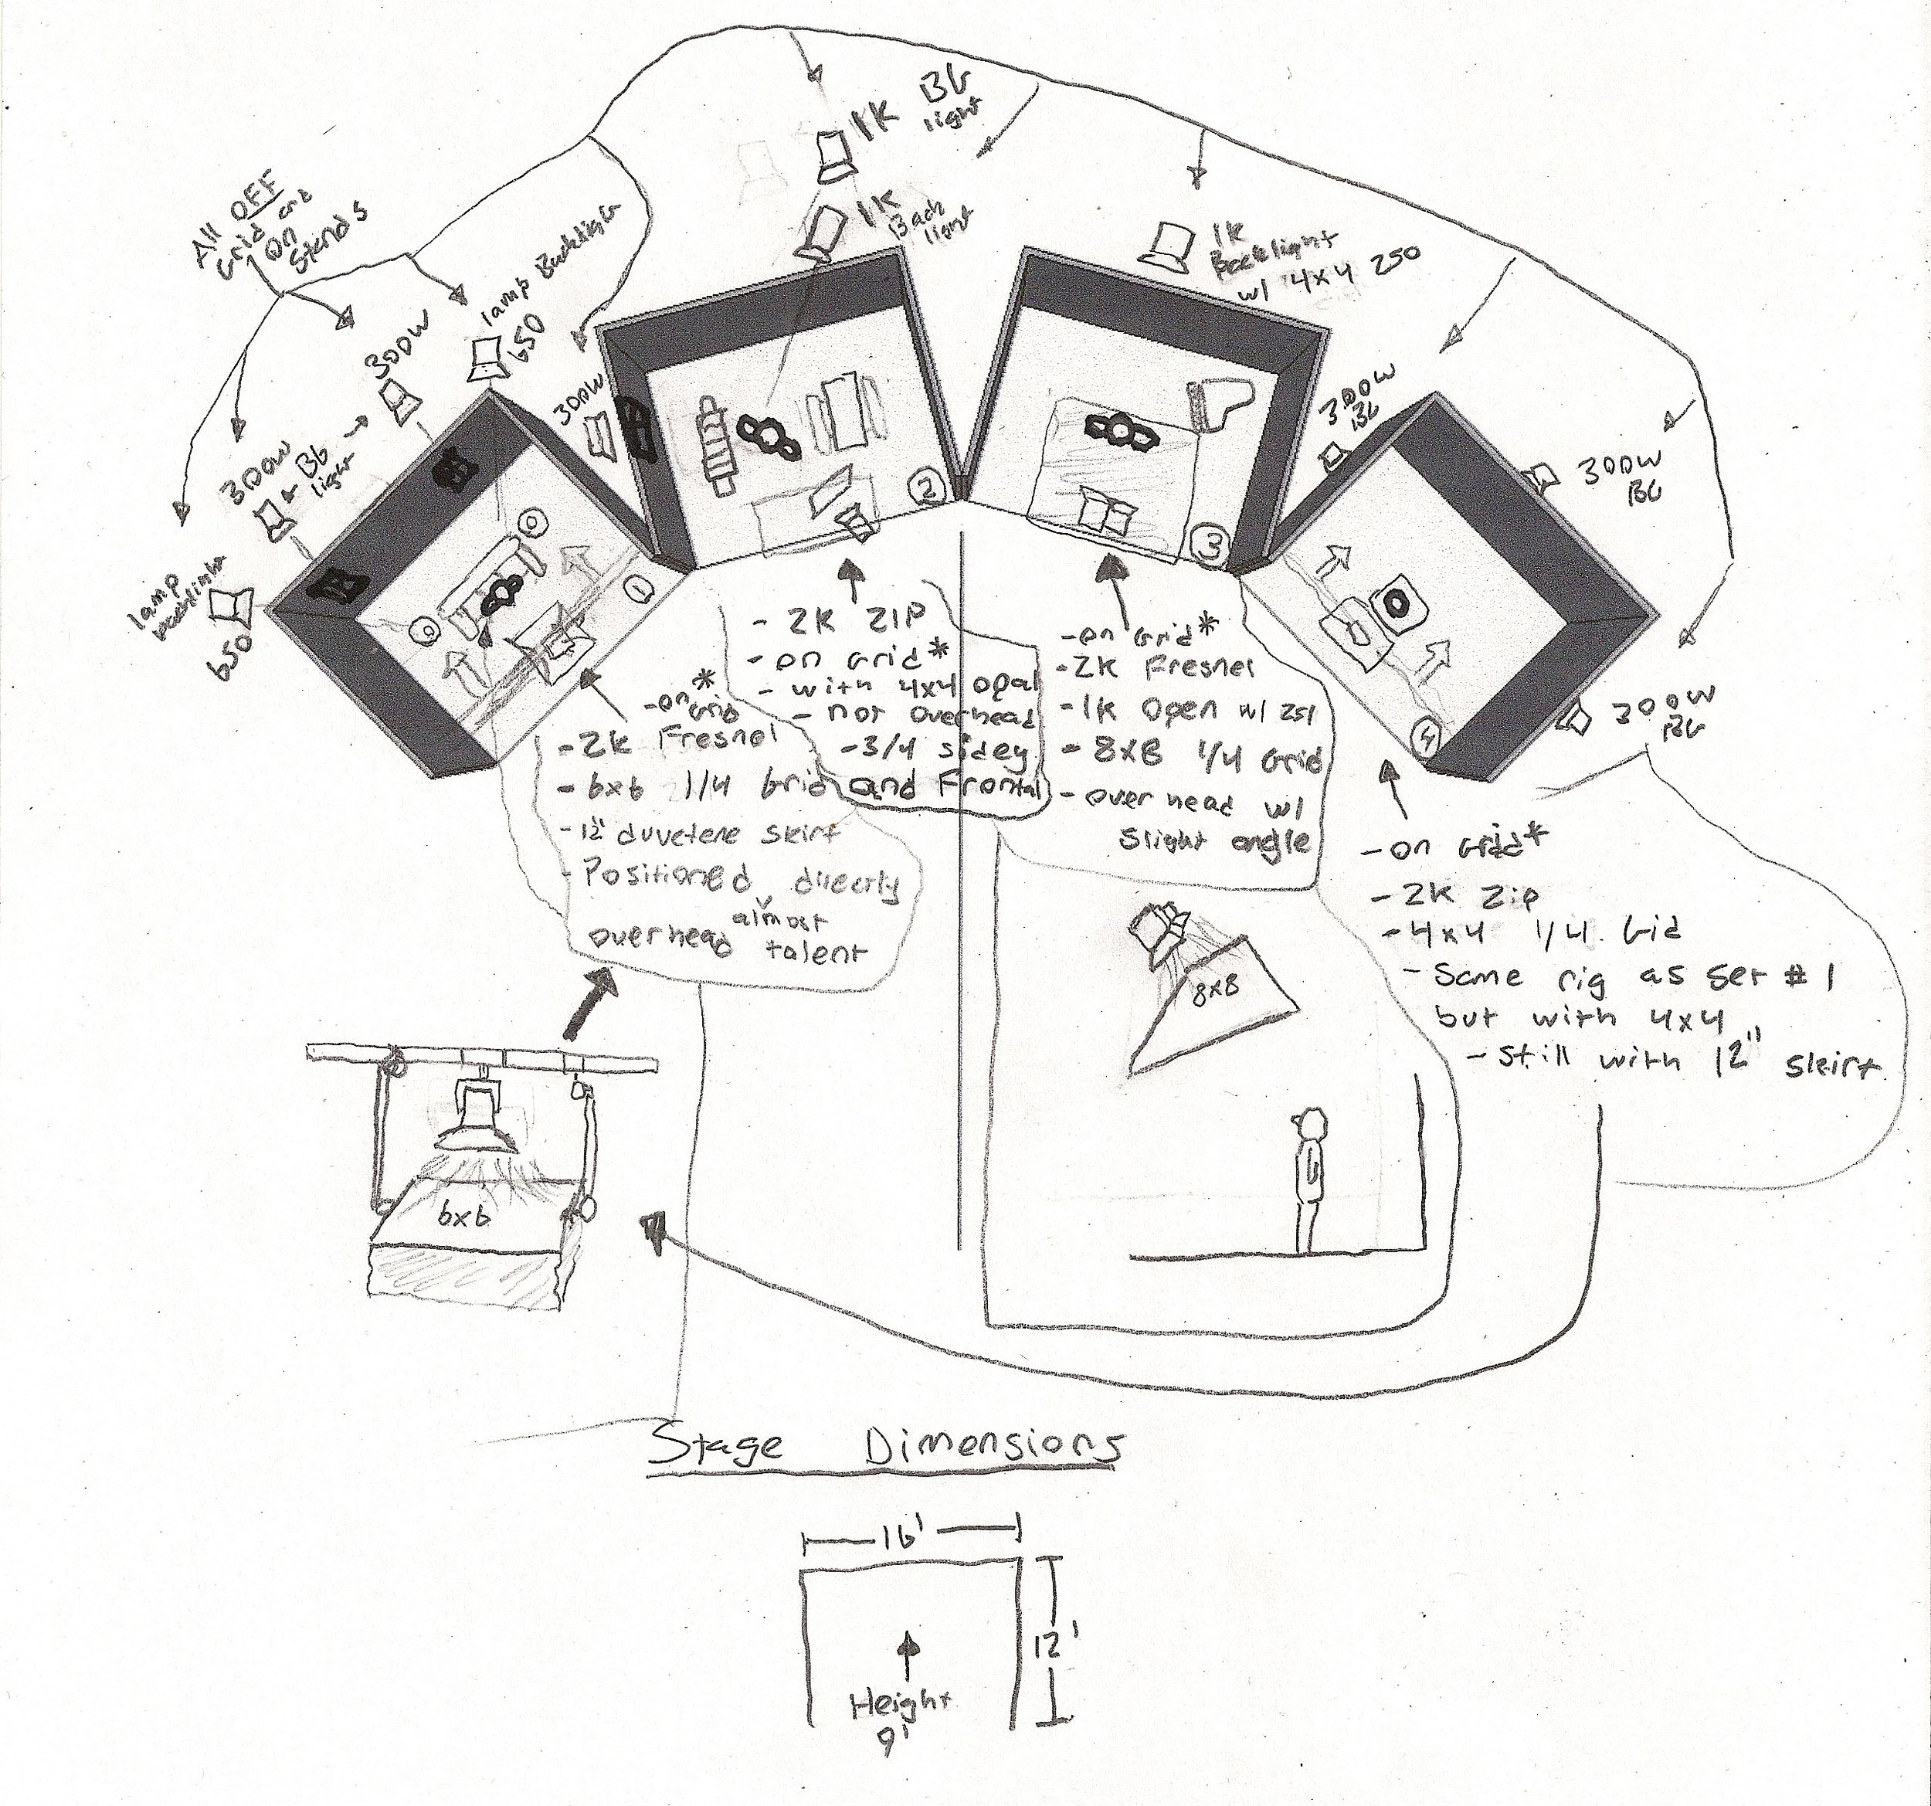 All OFF
Grid and
on
Stands
1K BG
light
1K
Back
light
1K
Backlight
w/ 4x4 250
lamp Backlight
650
300W
300W
← BG →
light
lamp
backlight
650
300W
300W
BG
300W
BG
300W
BG
1
2
3
4
- on
Grid*
- 2K Fresnel
- 6x6 1/4 Grid
- 12" duvetene skirt
- Positioned directly
almost
overhead talent
- 2K ZIP
- on Grid*
- with 4x4 opal
- not overhead
- 3/4 sidey
and Frontal
- on Grid*
- 2K Fresnel
- 1K Open w/ 251
- 8x8 1/4 Grid
- over head w/
slight angle
- on Grid*
- 2K Zip
- 4x4 1/4 Gid
- Same rig as set #1
but with 4x4
- still with 12" skirt
8x8
6x6
Stage Dimensions
16'
12'
Height
9'